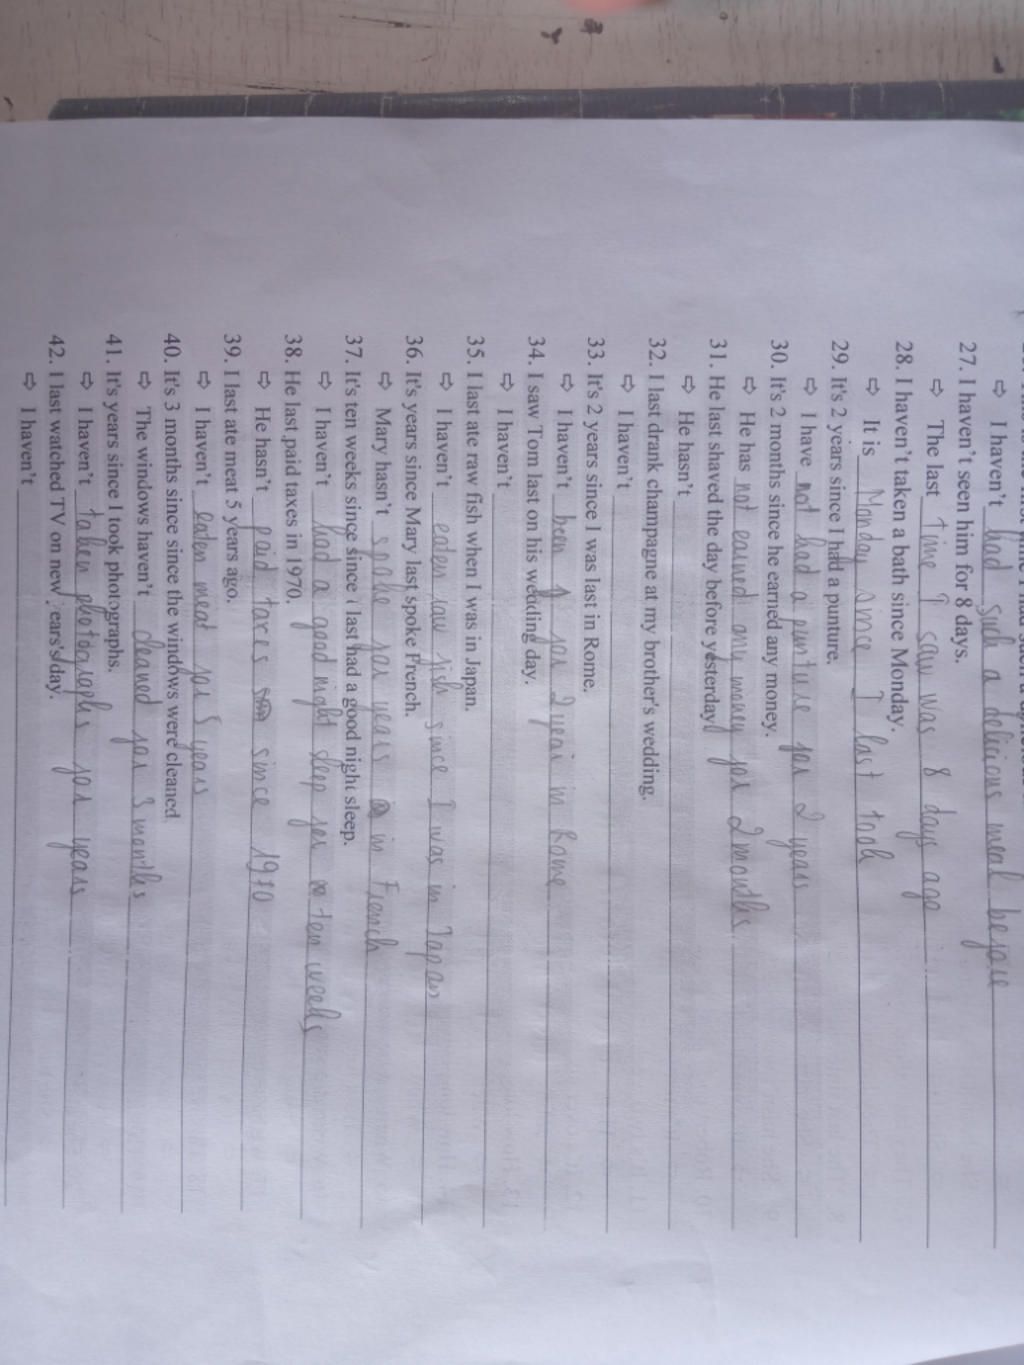 ⇨ I haven't had such a delicious meal before
27. I haven't seen him for 8 days.
⇨ The last time I saw was 8 days age
28. I haven't taken a bath since Monday.
⇨ It is Monday since I last took
29. It's 2 years since I had a punture.
⇨ I have not had a punture for 2 years
30. It's 2 months since he earned any money.
⇨ He has not earned any money for 2 months
31. He last shaved the day before yesterday
⇨ He hasn't
32. I last drank champagne at my brother's wedding.
⇨ I haven't
33. It's 2 years since I was last in Rome.
⇨ I haven't ben for 2 year in Rome
34. I saw Tom last on his wedding day.
⇨ I haven't
35. I last ate raw fish when I was in Japan.
⇨ I haven't eaten raw fish since I was in Japan
36. It's years since Mary last spoke French.
⇨ Mary hasn't spoke for years in French
37. It's ten weeks since since i last had a good night sleep.
⇨ I haven't had a good night sleep for ten weeks
38. He last paid taxes in 1970.
⇨ He hasn't paid taxes since 1970
39. I last ate meat 5 years ago.
⇨ I haven't eaten meat for 5 years
40. It's 3 months since since the windows were cleaned
⇨ The windows haven't cleaned for 3 months
41. It's years since I took photographs.
⇨ I haven't taken photographs for years
42. I last watched TV on new years's day.
⇨ I haven't